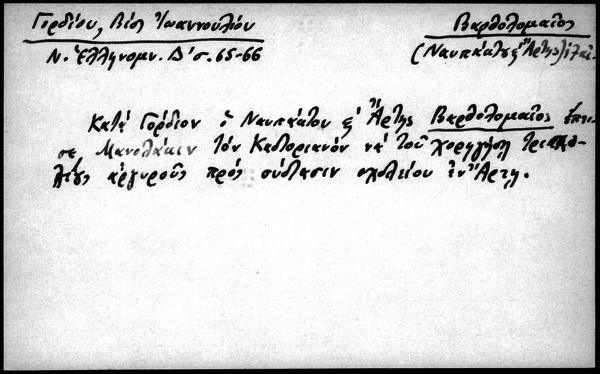 Γορδίου, Βίος Ἰωαννουλίου
Ν. Ἑλληνομν. Δ' σ. 65-66
Βαρθολομαῖος
(Ναυπάκτου & Ἄρτης)
Κατά Γόρδιον ὁ Ναυπάκτου & Ἄρτης Βαρθολομαῖος ἔπει-
σε Μανολάκιν τόν Καστοριανόν νά τοῦ χορηγήσῃ
ἀργυροῦς πρός σύστασιν σχολείου ἐν Ἄρτῃ.